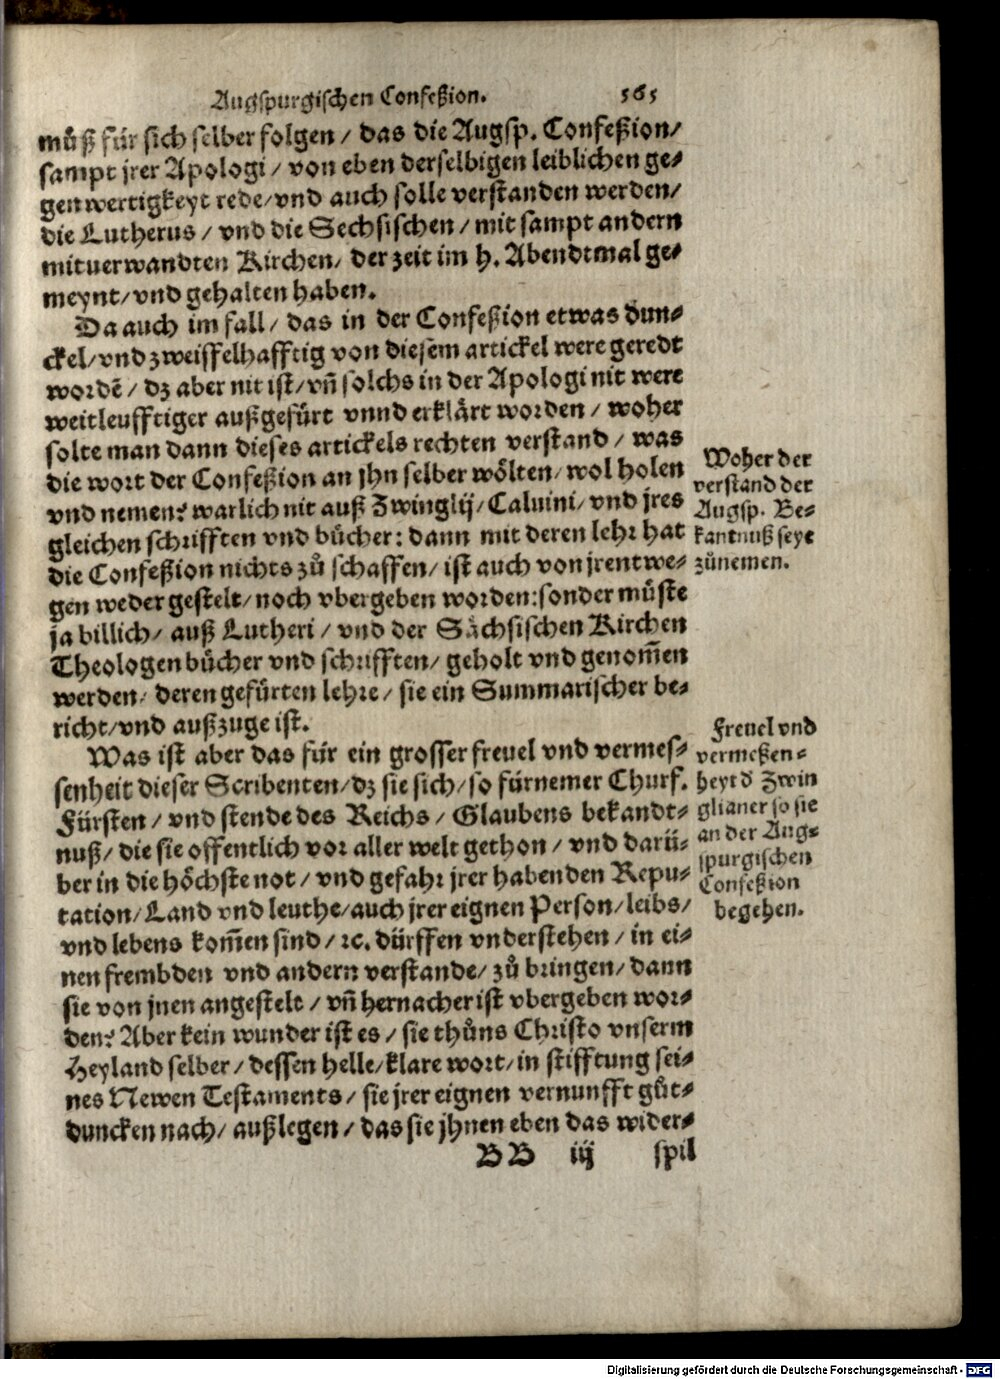 Augspurgischen Confeßion. 565
muͦß für sich selber folgen / das die Augsp. Confeßion/
sampt jrer Apologi / von eben derselbigen leiblichen ge⸗
genwertigkeyt rede/vnd auch solle verstanden werden/
die Lutherus / vnd die Sechsischen / mit sampt andern
mituerwandten Kirchen/ der zeit im h. Abendtmal ge⸗
meynt/vnd gehalten haben.
Da auch im fall / das in der Confeßion etwas dun⸗
ckel/vnd zweiffelhafftig von diesem artickel were geredt
wordē / dz aber nit ist/vñ solchs in der Apologi nit were
weitleufftiger außgefürt vnnd erklärt worden / woher
solte man dann dieses artickels rechten verstand / was
die wort der Confeßion an jhn selber wölten/wol holen
vnd nemen? warlich nit auß Zwinglij/Caluini/vnd jres
gleichen schrifften vnd bücher: dann mit deren lehr hat
die Confeßion nichts zuͦ schaffen/ ist auch von jrentwe⸗
gen weder gestelt/noch vbergeben worden:sonder müste
ja billich/ auß Lutheri / vnd der Sächsischen Kirchen
Theologen bücher vnd schrifften/ geholt vnd genom̄en
werden/ deren gefürten lehre / sie ein Summarischer be⸗
richt/vnd außzuge ist.
Was ist aber das für ein grosser freuel vnd vermes⸗
senheit dieser Scribenten/dz sie sich/so fürnemer Churf.
Fürsten / vnd stende des Reichs / Glaubens bekandt⸗
nuß/die sie offentlich vor aller welt gethon / vnd darü⸗
ber in die höchste not / vnd gefahr jrer habenden Repu⸗
tation/Land vnd leuthe/auch jrer eignen Person/leibs/
vnd lebens kom̄en sind / ꝛc. dürffen vnderstehen / in ei⸗
nen frembden vnd andern verstande/ zuͦ bringen/dann
sie von jnen angestelt / vñ hernacher ist vbergeben wor⸗
den? Aber kein wunder ist es / sie thuͦns Christo vnserm
Heyland selber / dessen helle/klare wort/in stifftung sei⸗
nes Newen Testaments / sie jrer eignen vernunfft guͦt⸗
duncken nach/ außlegen / das sie jhnen eben das wider⸗
BB iij spil
Woher der
verstand der
Augsp. Be⸗
kantnuß seye
zuͦnemen.
Freuel vnd
vermeßen⸗
heyt ď Zwin
glianer so sie
an der Aug⸗
spurgischen
Confeßion
begehen.
Digitalisierung gefördert durch die Deutsche Forschungsgemeinschaft - DFG